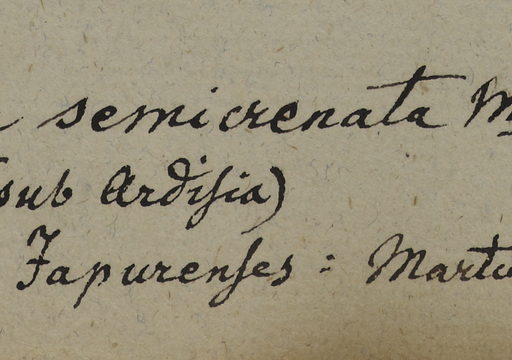 semicrenata M
(sub Ardisia)
Japurenses : Martiu